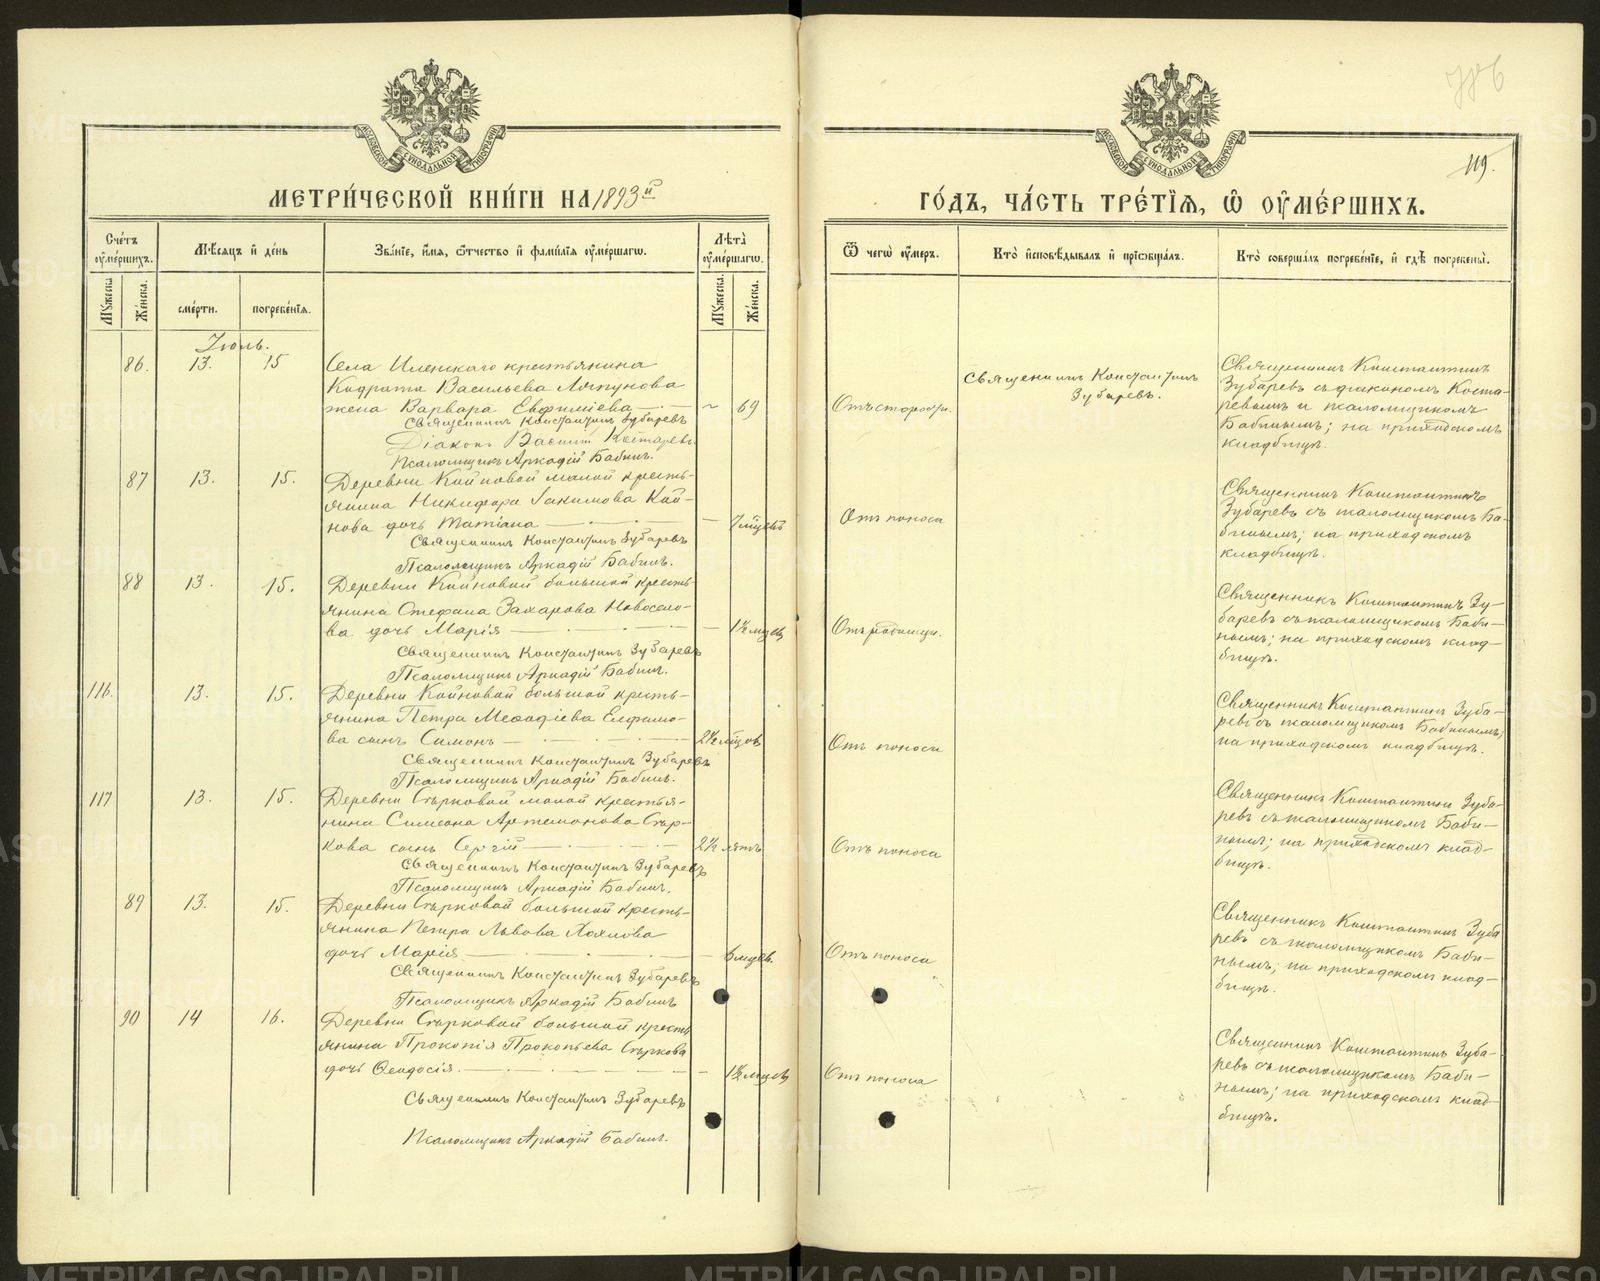 786
119.
МОСКОВСКОЙ СУНОДАЛЬНОЙ ТИПОГРАФИИ
МЕТРИ́ЧЕСКОЙ КНИ́ГИ НА 1893й
Сче́тъ ᲂу҆ме́ршихъ.
Мѣ́сяцъ и҆ де́нь
Зва́нїе, и҆́мя, ѻ҆́тчество и҆ фами́лїѧ ᲂу҆ме́ршагѡ.
Лѣ́та ᲂу҆ме́ршагѡ.
Мꙋ́жеска.
Же́нска.
сме́рти.
погребе́нїѧ.
Мꙋ́жеска.
Же́нска.
Іюль.
86. 13. 15 Села Иленскаго крестьянина
Кодрата Васильева Ляпунова
жена Варвара Евфиміева — 69
Священникъ Константинъ Зубаревъ
Діаконъ Василій Костаревъ
Псаломщикъ Аркадій Бабинъ.
87 13. 15. Деревни Койновой малой кресть-
янина Никифора Іакимова Кой-
нова дочь Татіана — 7 мцевъ
Священникъ Константинъ Зубаревъ
Псаломщикъ Аркадій Бабинъ.
88 13. 15. Деревни Койновой большой кресть-
янина Стефана Захарова Новосело-
ва дочь Марія — 1½ мцев
Священникъ Константинъ Зубаревъ
Псаломщикъ Аркадій Бабинъ.
116. 13. 15. Деревни Койновой большой кресть-
янина Петра Меѳодіева Елфимо-
ва сынъ Симонъ — 2½ мцов
Священникъ Константинъ Зубаревъ
Псаломщикъ Аркадій Бабинъ.
117 13. 15. Деревни Стрковой малой крестья-
нина Симеона Артемонова Стр-
кова сынъ Сергій — 2½ лѣтъ
Священникъ Константинъ Зубаревъ
Псаломщикъ Аркадій Бабинъ.
89 13. 15. Деревни Стрковой большой кресть-
янина Петра Львова Хохлова
дочь Марія — 6 мцев.
Священникъ Константинъ Зубаревъ
Псаломщикъ Аркадій Бабинъ
90 14 16. Деревни Стрковой большой кресть
янина Прокопія Прокопьева Стркова
дочь Ѳеодосія. — 1½ мцев
Священникъ Константинъ Зубаревъ
Псаломщикъ Аркадій Бабинъ.
МОСКОВСКОЙ СУНОДАЛЬНОЙ ТИПОГРАФИИ
ГО́ДЪ, ЧА́СТЬ ТРЕ́ТЇѦ, Ѽ ОУ҆МЕ́РШИХЪ.
Ѿ чегѡ̀ ᲂу҆́меръ.
Кто̀ и҆сповѣ́дывалъ и҆ прїѡбща́лъ.
Кто̀ соверша́лъ погребе́нїе, и҆ гдѣ̀ погребены̀.
Отъ старости.
Священникъ Константинъ
Зубаревъ.
Священникъ Константинъ
Зубаревъ съ діакономъ Коста-
ревымъ и псаломщикомъ
Бабинымъ; на приходскомъ
кладбищѣ.
Отъ поноса
Священникъ Константинъ
Зубаревъ съ псаломщикомъ Ба-
бинымъ; на приходскомъ
кладбищѣ.
Отъ родимца.
Священникъ Константинъ Зу-
баревъ съ псаломщикомъ Баби-
нымъ; на приходскомъ клад-
бищѣ.
Отъ поноса
Священникъ Константинъ Зуба-
ревъ съ псаломщикомъ Бабинымъ;
на приходскомъ кладбищѣ.
Отъ поноса
Священникъ Константинъ Зуба-
ревъ съ псаломщикомъ Баби-
нымъ; на приходскомъ клад-
бищѣ.
Отъ поноса
Священникъ Константинъ Зуба
ревъ съ псаломщикомъ Баби-
нымъ; на приходскомъ клад-
бищѣ.
Отъ поноса
Священникъ Константинъ Зуба-
ревъ съ псаломщикомъ Баби-
нымъ; на приходскомъ клад-
бищѣ.
METRIKI.GASO-URAL.RU